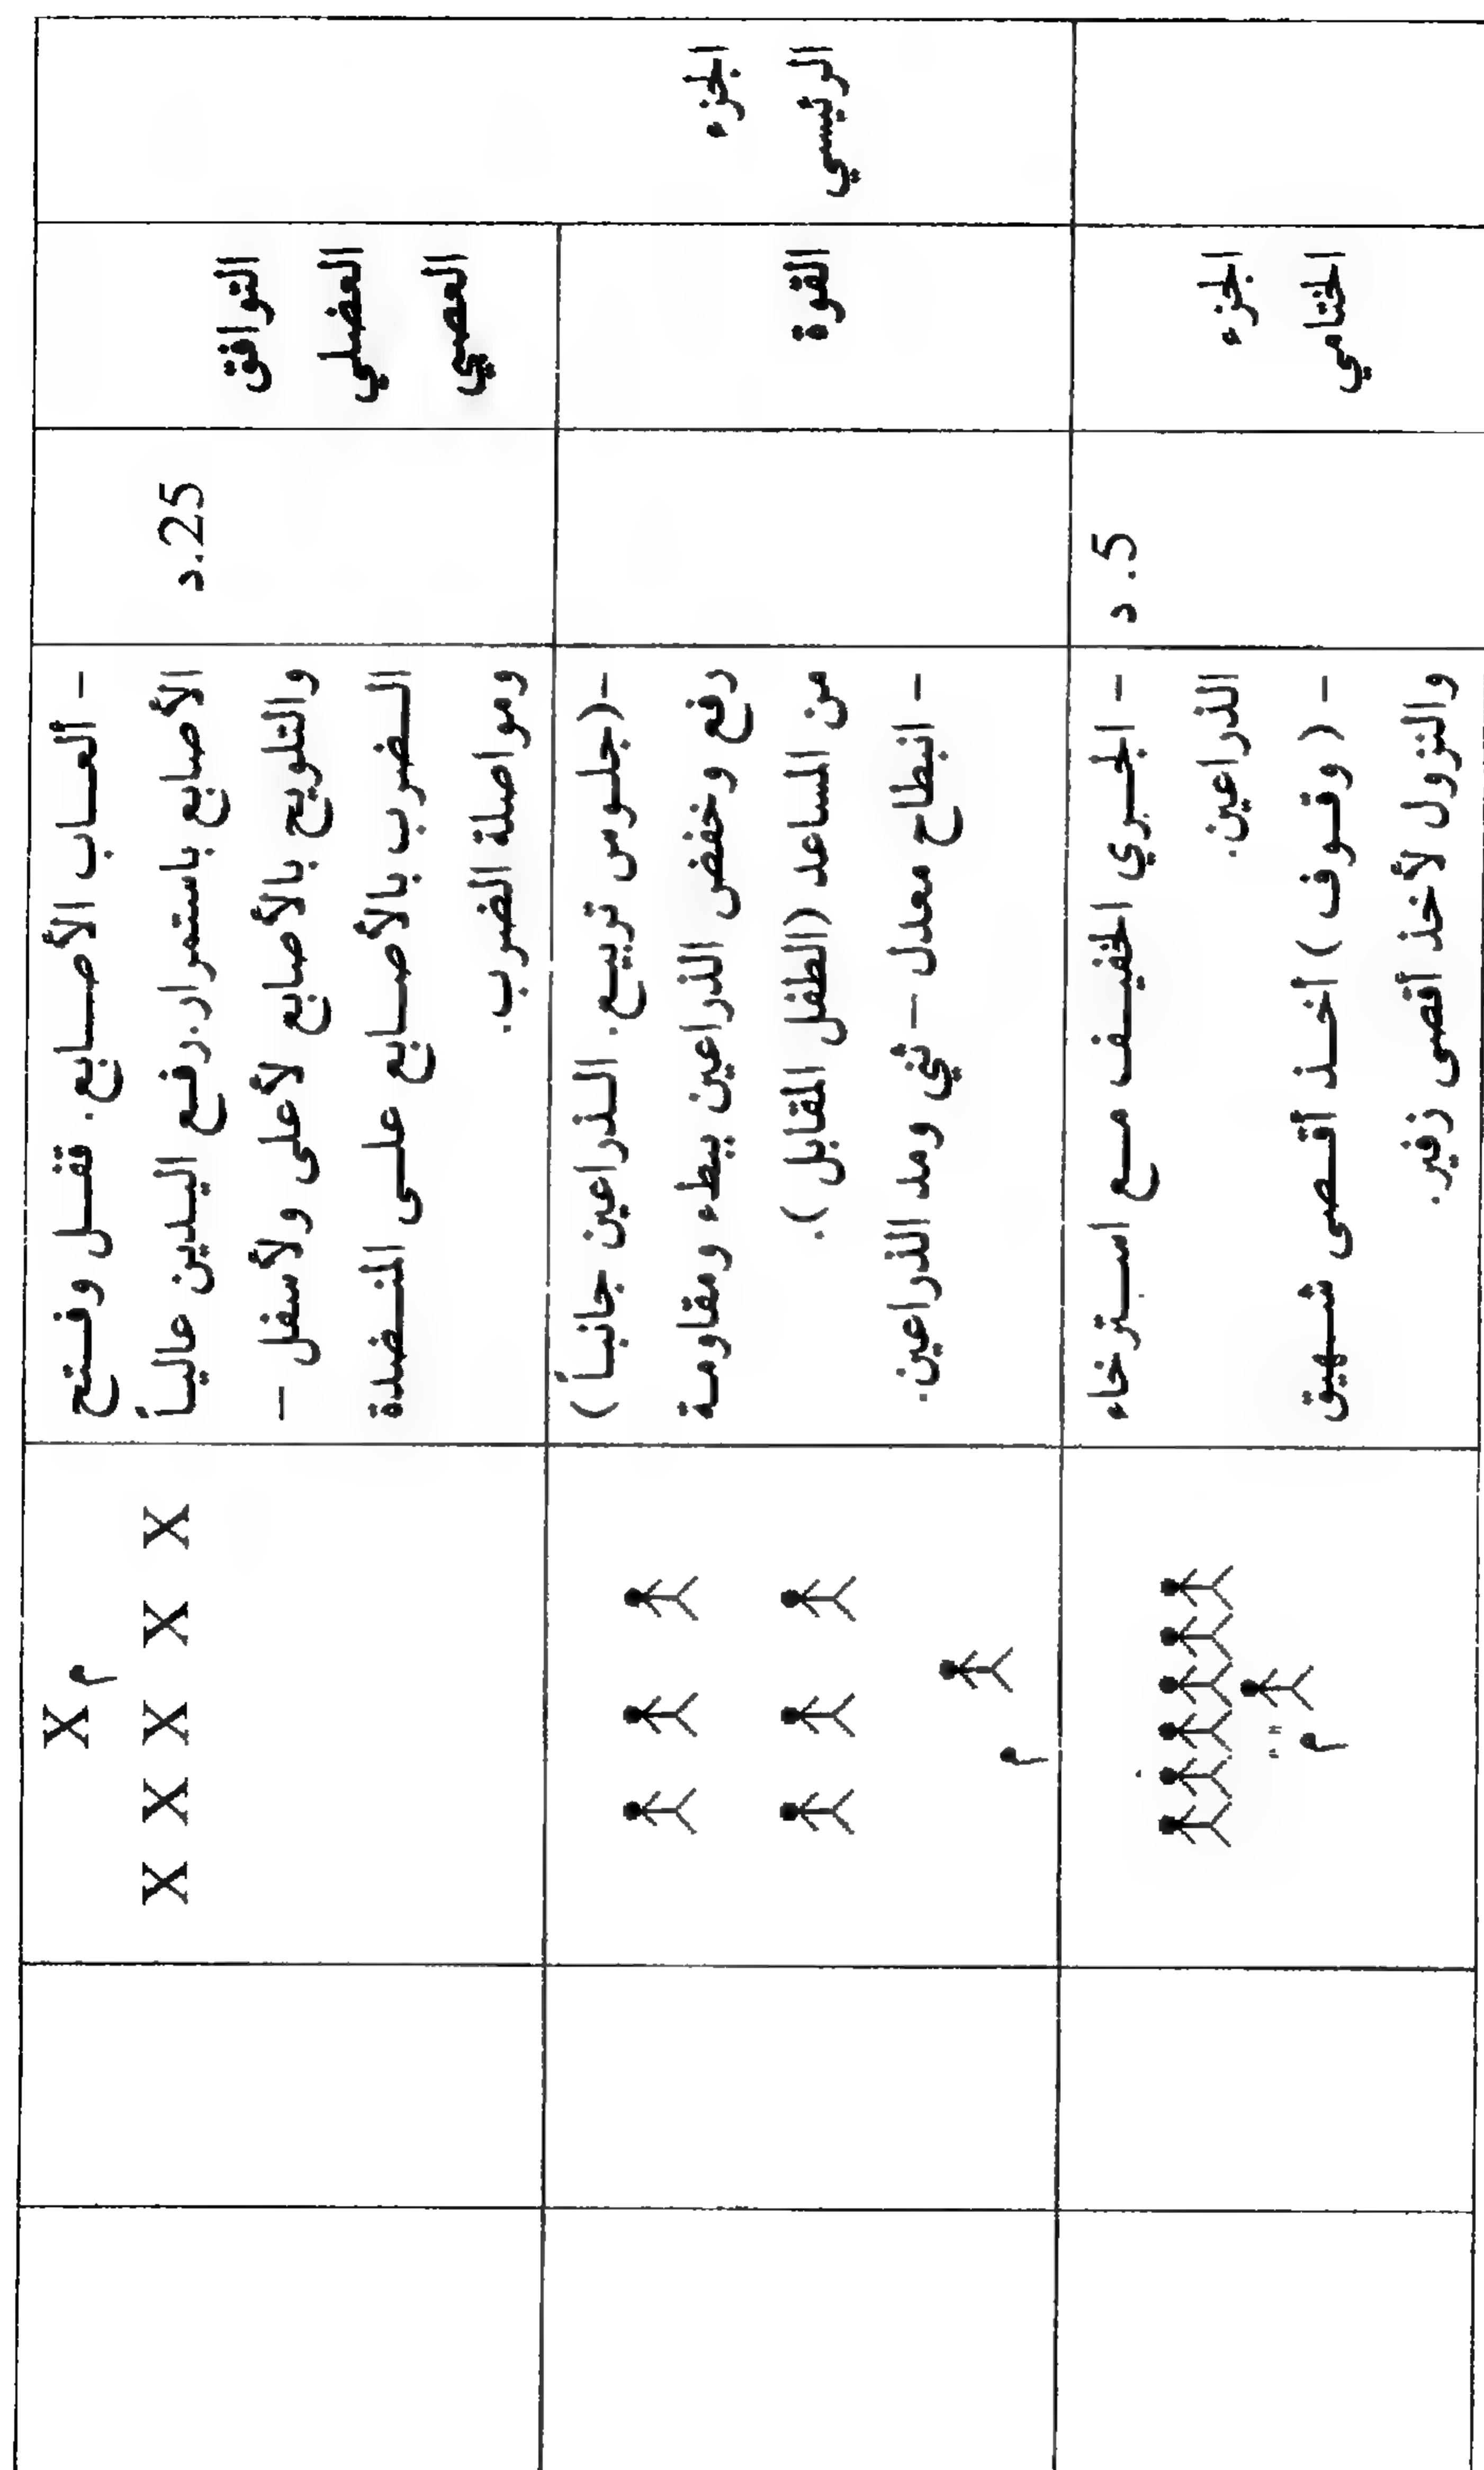 الجزء
الرئيسي
التوافق
العضلي
العصبي
25.د
- العاب الأصابع. قفل وفتح
الأصابع باستمرار.رفع اليدين عالياً
والتلويح بالأصابع لأعلى ولأسفل –
الضرب بالأصابع على المنضدة
ومواصلة الضرب.
X م
X X X X X
القوة
-(جلوس تربيع. الذراعين جانباً)
رفع وخفض الذراعين ببطء ومقاومة
من المساعد (الطفل المقابل).
- انبطاح معدل – ثني ومد الذراعين.
م
الجزء
الختامي
5.د
- الجري الخفيف مع استرخاء
الذراعين.
- (وقوف) أخذ أقصى شهيق
والنزول لأخذ أقصى زفير.
م